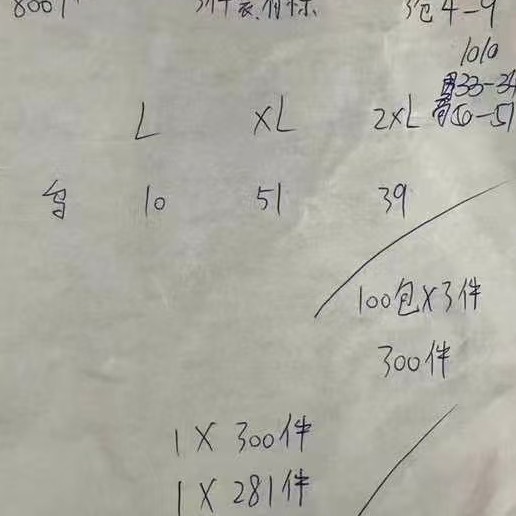 4-9
1010
33-34
L XL 2XL 50-51
10 51 39
100包X3件
300件
1 X 300件
1 X 281件